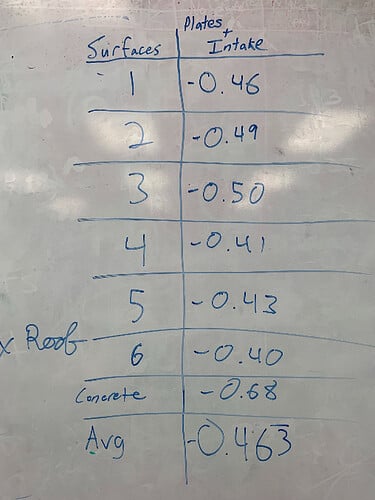 Plates
+
Surfaces Intake
1 -0.46
2 -0.49
3 -0.50
4 -0.41
5 -0.43
x Roof
6 -0.40
Concrete -0.68
Avg -0.463